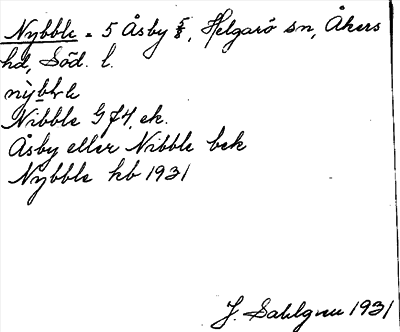 Nybble = 5 Åsby §, Helgarö sn, Åkers
hd, Söd. l.
nỳbble
Nibble Gf4, ek.
Åsby eller Nibble bek
Nybble kb 1931
J. Sahlgren 1931